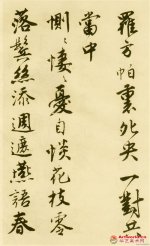 羅方帕裹夗央一對
當中
惻惻悽悽憂自惔花枝零
落鬓絲添週遮燕語春